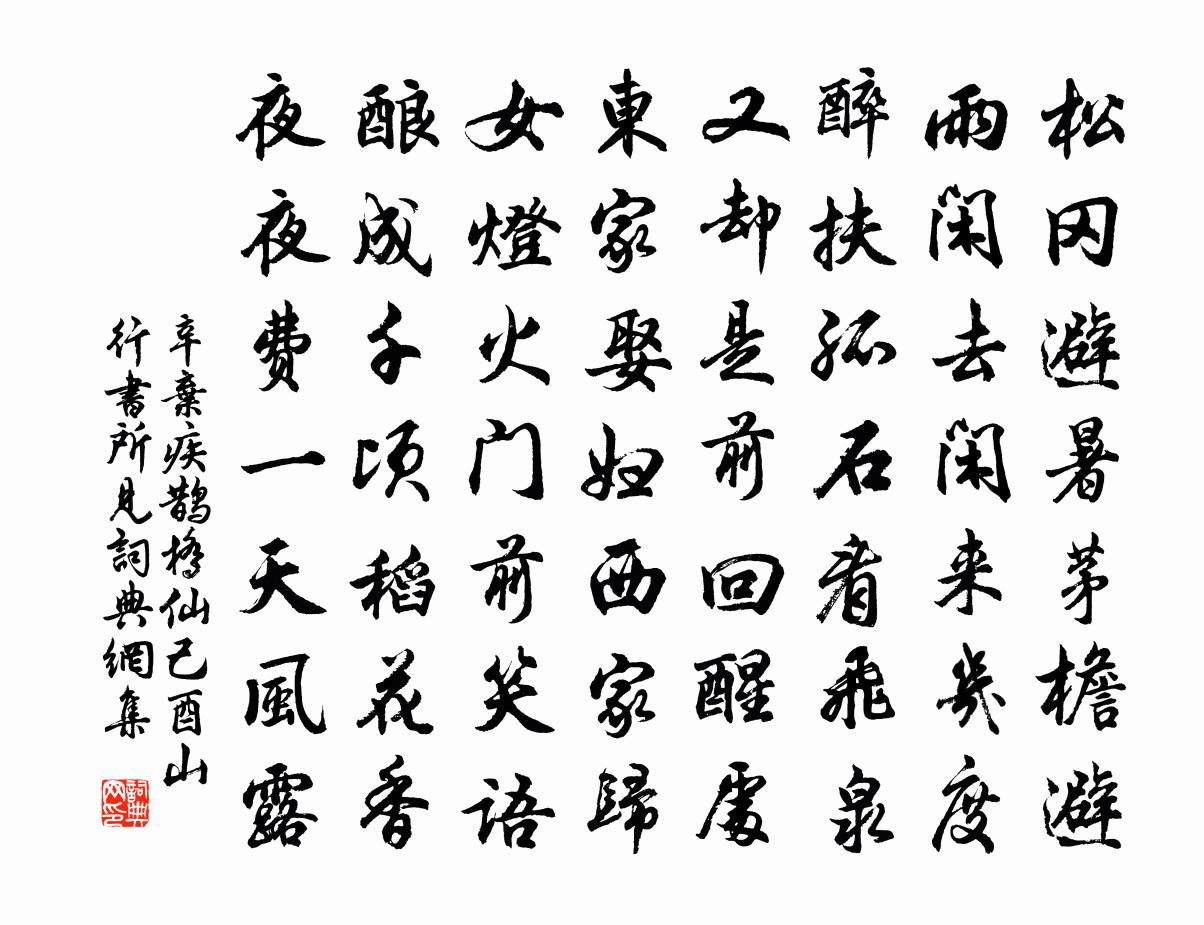 松冈避暑茅檐避
雨闲去闲来幾度
醉扶孤石看飛泉
又却是前回醒處
東家娶妇西家歸
女燈火门前笑语
酿成千顷稻花香
夜夜费一天風露
辛棄疾鹊橋仙己酉山
行書所見詞典網集
詞典网印